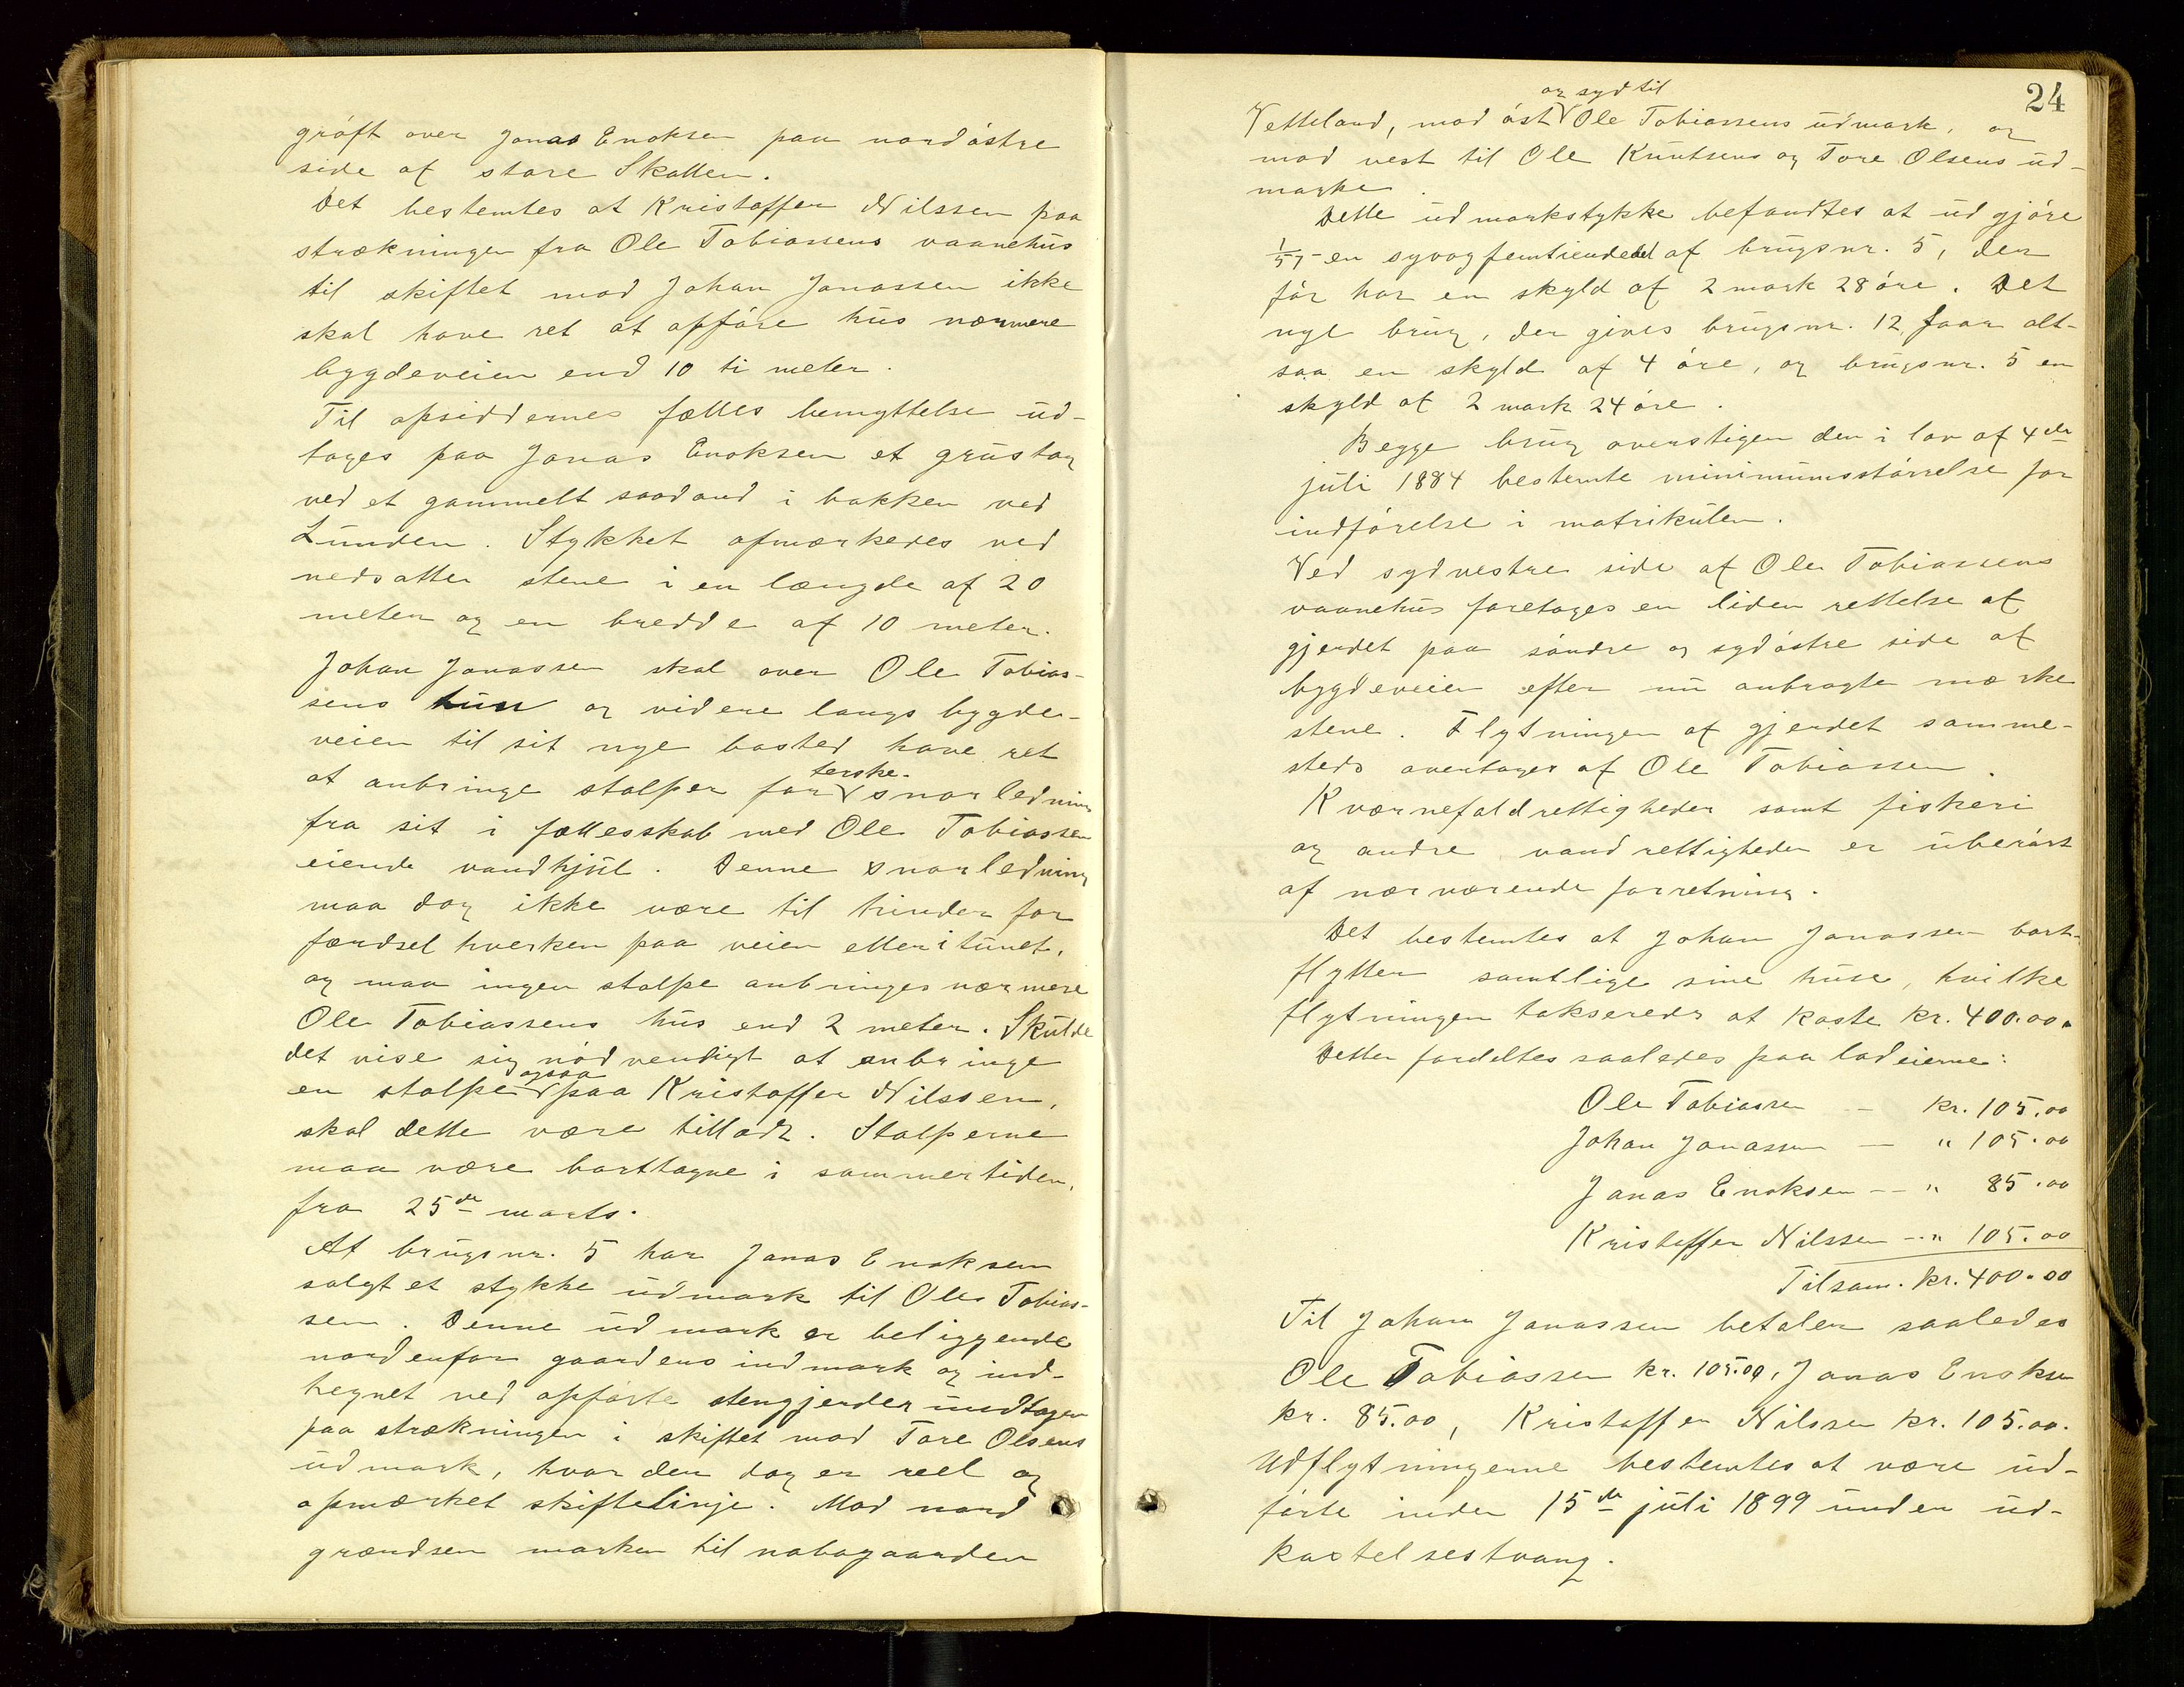 grøft over Jonas Enoksen paa nordøstre
side af store Skatten.
Det bestemtes at Kristoffer Nilssen paa
strækningen fra Ole Tobiassens vaanehus
til skiftet mod Johan Jonassen ikke
skal have ret at opføre hus nærmere
bygdeveien end 10 ti meter.
Til opsiddernes fælles benyttelse ud-
tages paa Jonas Enoksen et grustag
ved et gammelt saadand i bakken ved
Lunden. Stykket afmærkedes ved
nedsatter stene i en længde af 20
meter og en bredde af 10 meter.
Johan Jonassen skal over Ole Tobias-
sens tun og videre langs bygde-
veien til sit nye bosted have ret
terske-
at anbringe stolper for snorledning
fra sit i fællesskab med Ole Tobiassen
eiende vandhjul. Denne snorledning
maa dog ikke være til hinder for
færdsel hverken paa veien eller i tunet,
og maa ingen stolpe anbringes nærmere
Ole Tobiassens hus end 2 meter. Skulde
det vise sig nødvendigt at anbringe
ogsaa
en stolpe paa Kristoffer Nilssen,
skal dette være tilladt. Stolperne
maa være borttagne i sommertiden,
fra 25de marts.
Af brugsnr. 5 har Jonas Enoksen
solgt et stykke udmark til Ole Tobias-
sen. Denne udmark er beliggende
nordenfor gaardens indmark og ind-
hegnet ved opførte stengjerder undtagen
paa strækningen i skiftet mod Tore Olsens
udmark, hvor der dog er reel og
opmærket skiftelinje. Mod nord
grændsen marken til nabogaarden
24
og syd til
Vetteland, mod øst Ole Tobiassens udmark, og
mod vest til Ole Knutsens og Tore Olsens ud-
marke.
Dette udmarkstykke befandtes at udgjøre
1/57 en syvogfemtiendedel af brugsnr. 5, der
før har en skyld af 2 mark 28 øre. Det
nye brug, der gives brugsnr. 12, faar alt-
saa en skyld af 4 øre, og brugsnr. 5 en
skyld af 2 mark 24 øre.
Begge brug overstiger den i lov af 4de
juli 1884 bestemte minimumsstørrelse for
indførelse i matrikulen.
Ved sydvestre side af Ole Tobiassens
vaanehus foretages en liden rettelse af
gjerdet paa søndre og sydøstre side af
bygdeveien efter nu anbragte mærke
stene. Flytningen af gjerdet samme-
steds overtages af Ole Tobiassen.
Kværnefaldrettigheder samt fiskeri
og andre vandrettigheder er uberørt
af nærværende forretning.
Det bestemtes at Johan Jonassen bort-
flytter samtlige sine huse, hvilke
flytningen takseredes at koste kr. 400.00.
Dette fordeltes saaledes paa lodeierne:
Ole Tobiassen - kr. 105.00
Johan Jonassen - " 105.00
Jonas Enoksen - " 85.00
Kristoffer Nilssen - " 105.00
Tilsam. kr. 400.00
Til Johan Jonassen betaler saaledes
Ole Tobiassen kr. 105.00, Jonas Enoksen
kr. 85.00, Kristoffer Nilssen kr. 105.00.
Udflytningerne bestemtes at være ud-
førte inden 15de juli 1899 under ud-
kastelsestvang.